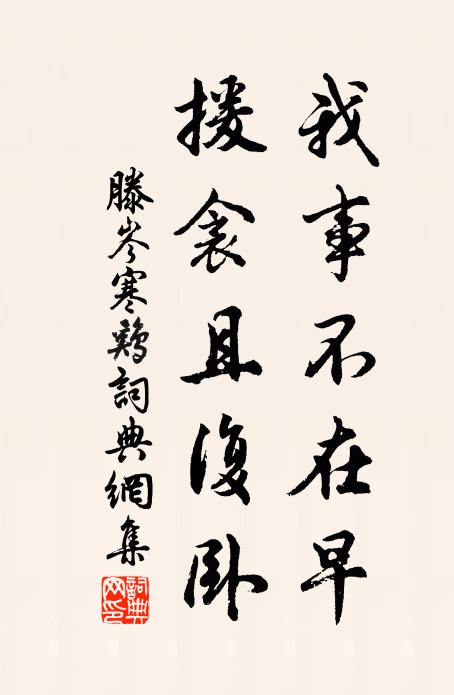 我事不在早
援衾且復卧
滕岑寒鷄詞典網集
詞典网印